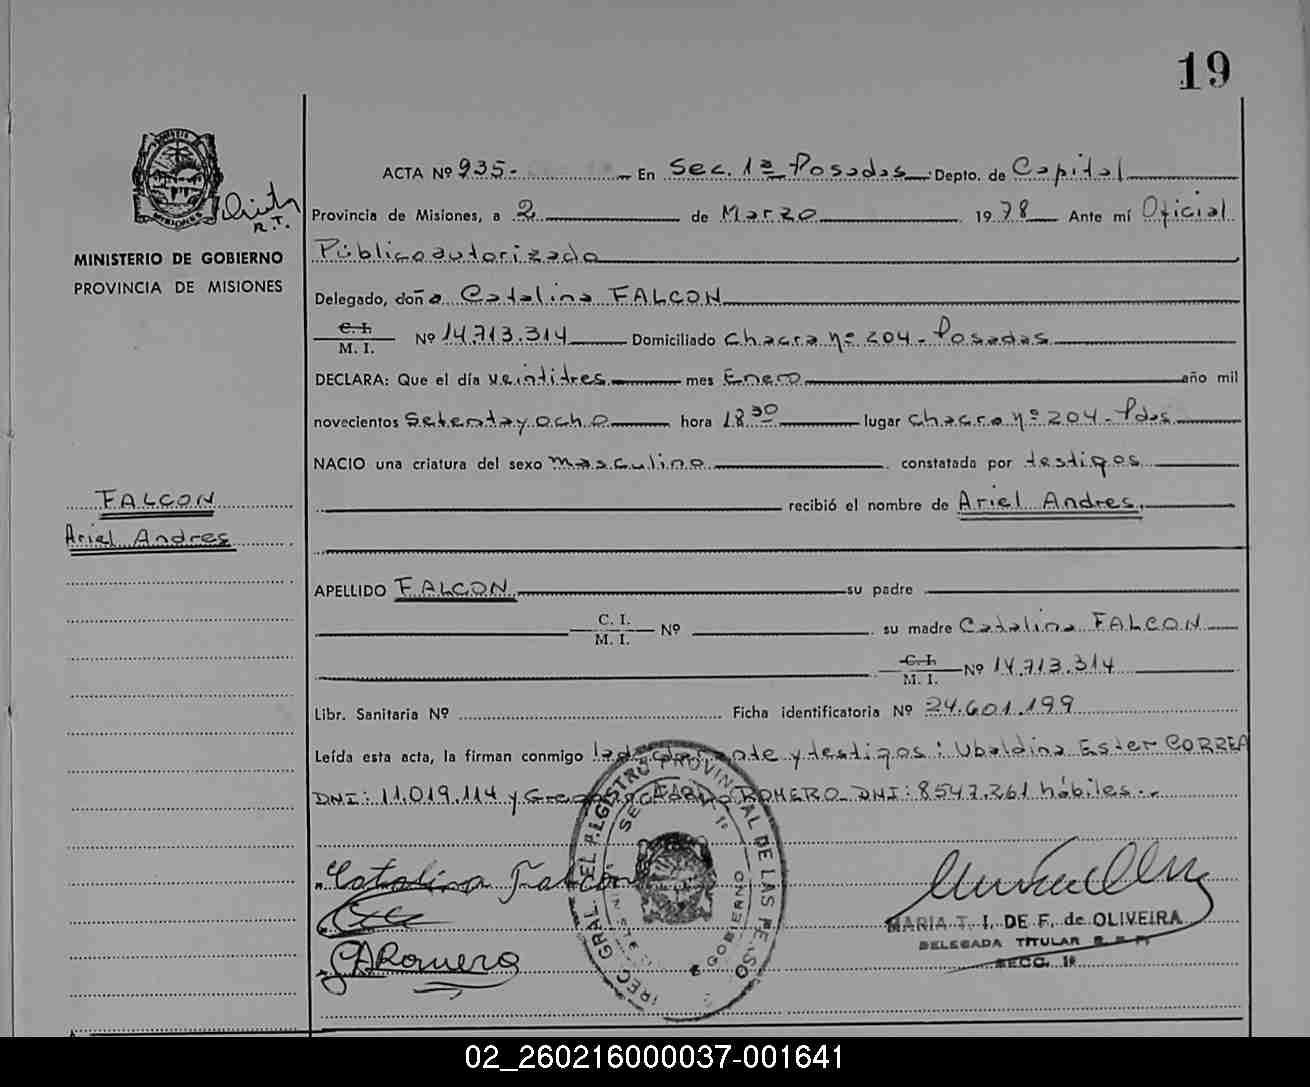 19
ACTA Nº 935- En Sec. 1ª Posadas Depto. de Capital
Provincia de Misiones, a 2 de Marzo 1978 Ante mí Oficial
Público autorizado
R.T.
MINISTERIO DE GOBIERNO
PROVINCIA DE MISIONES
Delegado, doña Catalina FALCON
C. I.
M. I. Nº 14.713.314 Domiciliado chacra nº 204 - Posadas
DECLARA: Que el día veintitres mes Enero año mil
novecientos Setenta y ocho hora 18 30 lugar chacra nº 204 - Pdas
NACIO una criatura del sexo masculino constatada por testigos
recibió el nombre de Ariel Andres
FALCON
Ariel Andres
APELLIDO FALCON su padre
C. I.
M. I. Nº su madre Catalina FALCON
C. I.
M. I. Nº 14.713.314
Libr. Sanitaria Nº Ficha identificatoria Nº 24.601.199
Leída esta acta, la firman conmigo la declarante y testigos: Ubaldina Ester CORREA
DNI: 11.019.114 y ROMERO DNI: 8547.261 hábiles.-
Catalina Falcon
GARomero
MARIA T. I. DE F. de OLIVEIRA
DELEGADA TITULAR
SECC. 1ª
02_260216000037-001641